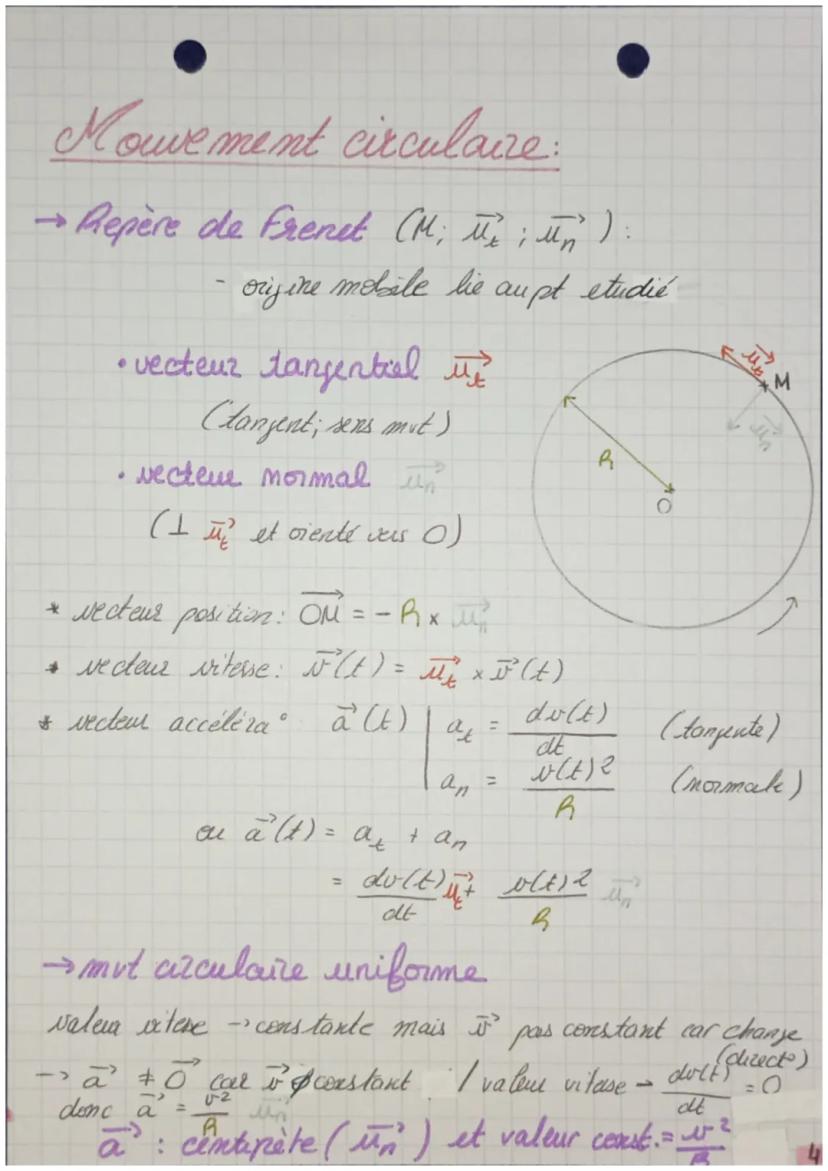 Mouvement circulaire:
→ Repère de Frenet (M; u⃗t ; u⃗n) :
- origine mobile lie au pt etudié
• vecteur tangentiel u⃗t
(tangent; sens mvt)
• vecteur normal u⃗n
(⊥ u⃗t et orienté vers O)
u⃗t
M
u⃗n
R
O
* vecteur position: OM⃗ = - R x u⃗n
* vecteur vitesse: v⃗(t) = u⃗t x v⃗(t)
* vecteur accéléra° a⃗(t) | at = dv(t)/dt (tangente)
an = v(t)2/R (normale)
ou a⃗(t) = at + an
= dv(t)/dt u⃗t + v(t)2/R u⃗n
→ mvt circulaire uniforme
valeur vitesse → constante mais v⃗ pas constant car change
(direct°)
→ a⃗ ≠ 0⃗ car v⃗ constant / valeur vitesse → dv(t)/dt = 0
donc a⃗ = v²/R u⃗n
a⃗ : centripète (u⃗n) et valeur const. = v²/R
4